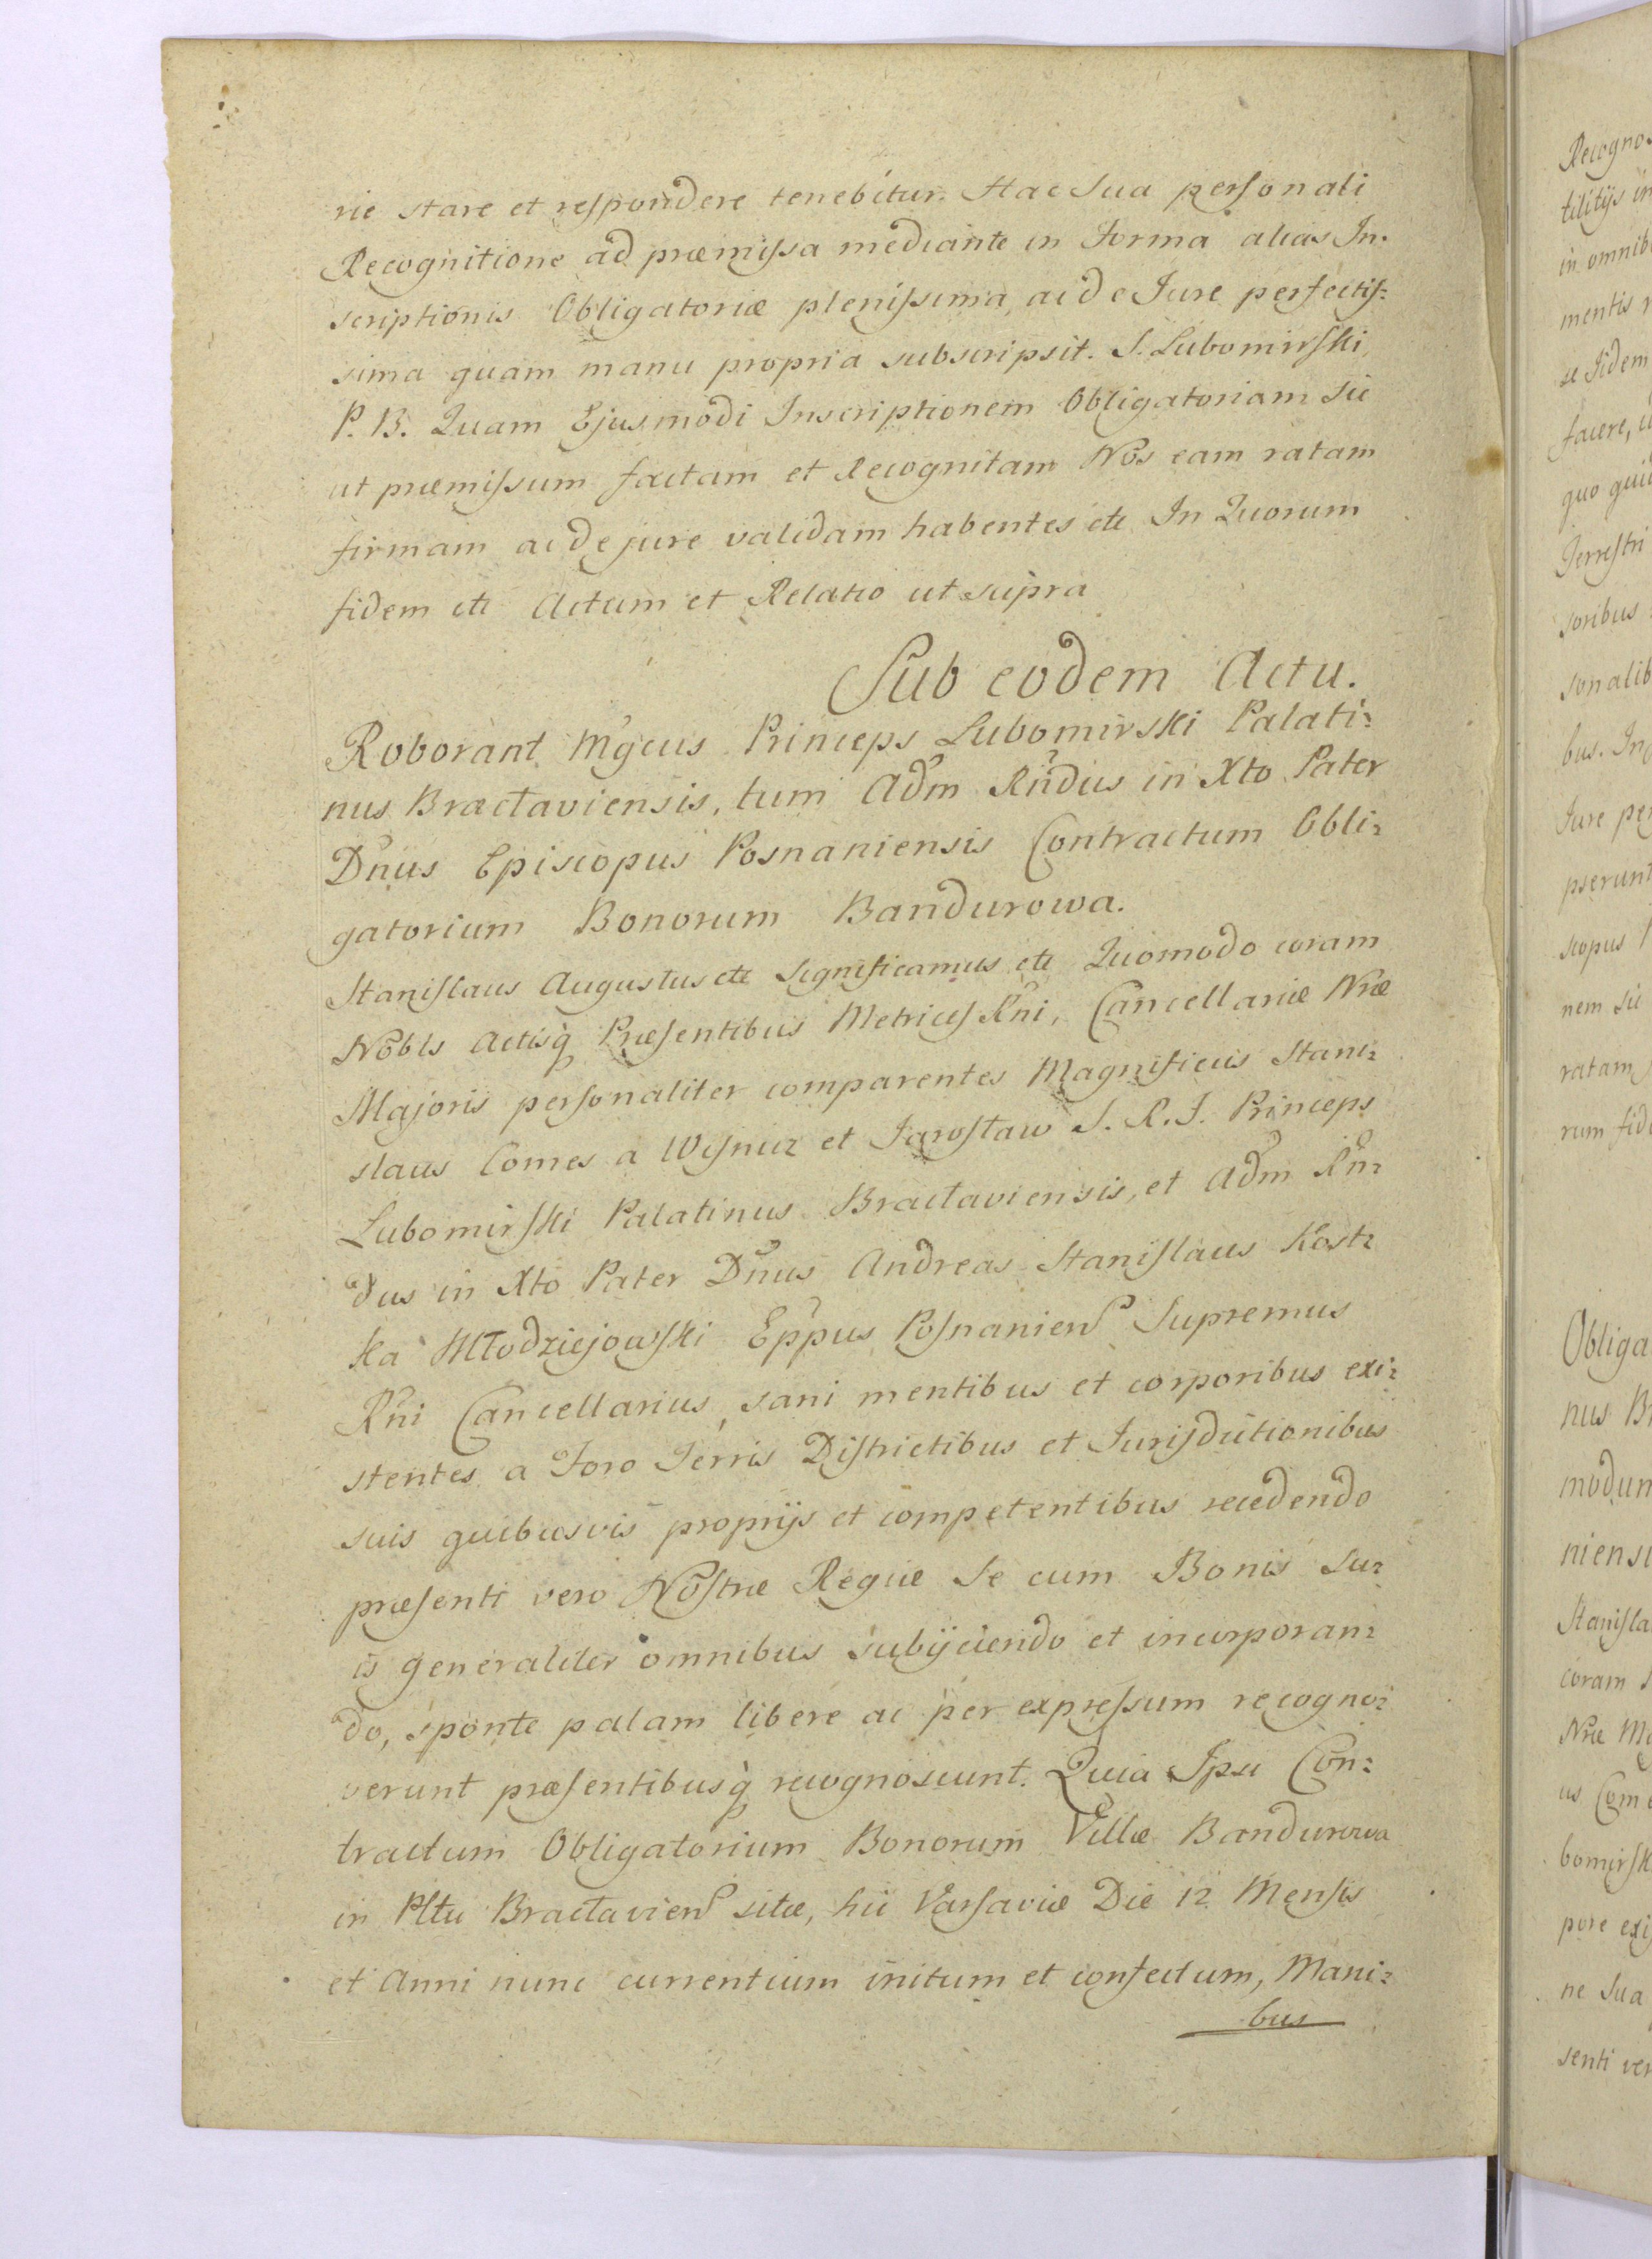 rie stare et respondere tenebitur. Hac Sua personali
Recognitione ad præmissa mediante in Forma alias In-
scriptionis Obligatoriæ plenissima, ac de Jure perfectis-
sima quam manu propria subscripsit. S. Lubomirski
P. B. Quam Ejusmodi Inscriptionem Obligatoriam sic
ut præmissum factam et Recognitam Nos eam ratam
firmam ac de jure validam habentes etc In Quorum
fidem etc Actum et Relatio ut supra
Sub eodem Actu.
Roborant Mgcus Princeps Lubomirski Palati-
nus Bractaviensis, tum Adm Rndus in Xto Pater
Dnus Episcopus Posnaniensis Contractum Obli-
gatorium Bonorum Bandurowa.
Stanislaus Augustus etc Significamus etc Quomodo coram
Nobis Actisq Præsentibus Metrices Rni, Cancellariæ Nræ
Majoris personaliter comparentes Magnificus Stani-
slaus Comes a Wisnicz et Jarosław S. R. J. Princeps
Lubomirski Palatinus Bractaviensis, et Adm Rn-
dus in Xto Pater Dnus Andreas Stanislaus Kost-
ka Młodziejowski Eppus Posnanien Supremus
Rni Cancellarius, sani mentibus et corporibus exi-
stentes a Foro Terris Districtibus et Jurisdictionibus
suis quibusvis proprijs et competentibus recedendo
præsenti vero Nostræ Regiæ Se cum Bonis Su-
is generaliter omnibus subijciendo et incorporan-
do, sponte palam libere ac per expressum recogno-
verunt præsentibusq recognoscunt. Quia Ipsi Con-
tractum Obligatorium Bonorum Villæ Bandurowa
in Pltu Bractavien sitæ, hic Varsaviæ Die 12 Mensis
et Anni nunc currentium initum et confectum, Mani-
bus
Recogno
tilitijs in
in omnib
mentis
se Fidem
facere,
quo qui
Terrestri
soribus
sonalib
bus. In
Jure per
pserunt
scopus
nem sic
ratam
rum fid
Obliga
nus B
modum
niensi
Stanisla
coram
Nræ M
us Com
bomirsk
pore exi
ne Sua
senti ver